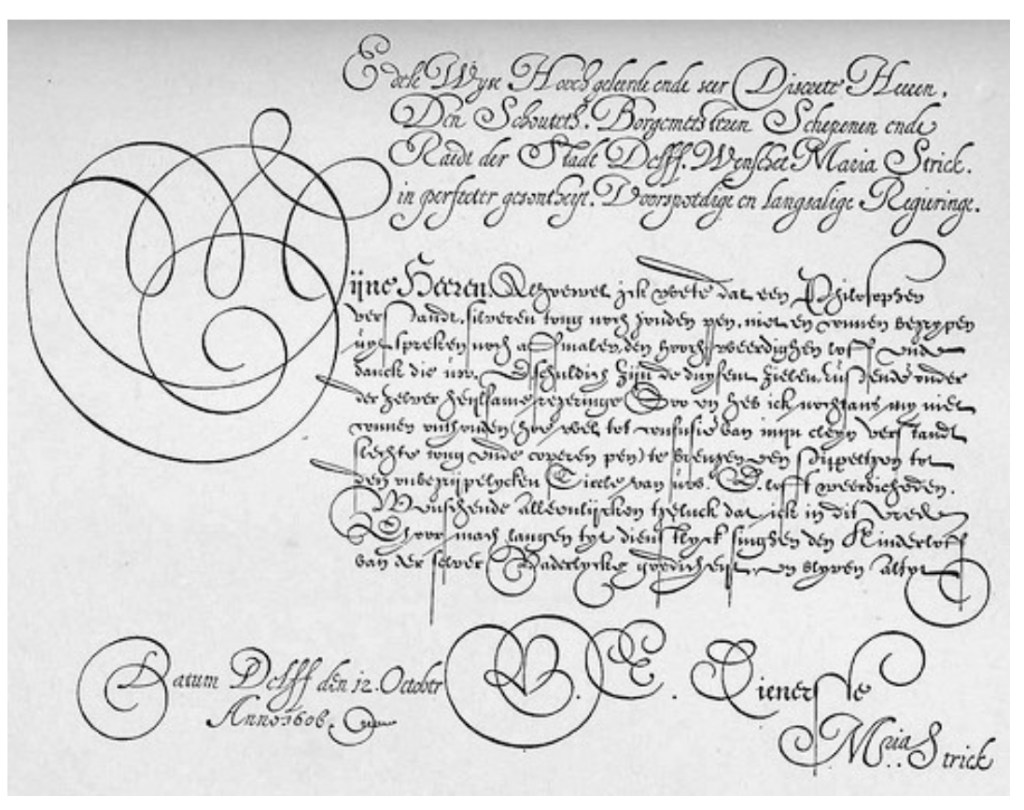 Edele Wyse Hoochgeleerde ende seer Discrete Heeren.
Den Schouteth. Borgemeesteren Schepenen ende
Raedt der Stadt Delff. Wenschet Maria Strick.
in perfecter gesontheyt. Voorspoedige en langsalige Regieringe.
Mijne Heeren. Alhoewel ick weete dat een Philosophen
verstandt, silveren tong noch gouden pen, niet en connen begrypen
uyt spreken noch aff malen, den hooch weerdighen loff ende
danck die uw. schuldich zijn de duysent zielen, rustende onder
der zelver heylsame regeringe Soo en heb ick nochtans my niet
connen onthouden (hoe wel tot confusie van mijn cleyn verstandt
slechte tong ende coperen pen) te brengen een tot
den onbegrijpelycken Circle van uwe. E. loff weerdicheden.
Wenschende alleenlijcken tgeluck dat ick in dit vrede
Choor mach langen tyt dienstlyck singhen den Kinderloff
van der selver Vaderlycke goedicheyt, en blyven altyt
Datum Delff den 12. Octobr V. E. Dienersse
Anno 1606. Maria Strick